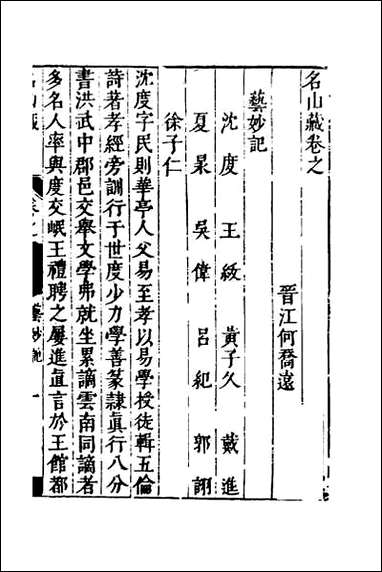 名山藏卷之
晉江何喬遠
藝妙記
沈度 王紱 黃子久 戴進
夏杲 吳偉 呂紀 郭詡
徐子仁
沈度字民則華亭人父易至孝以易學授徒輯五倫
詩著孝經旁訓行于世度少力學善篆隷眞行八分
書洪武中郡邑交舉文學弗就坐累謫雲南同謫者
多名人率與度交岷王禮聘之屢進直言於王館都
藝妙記 一